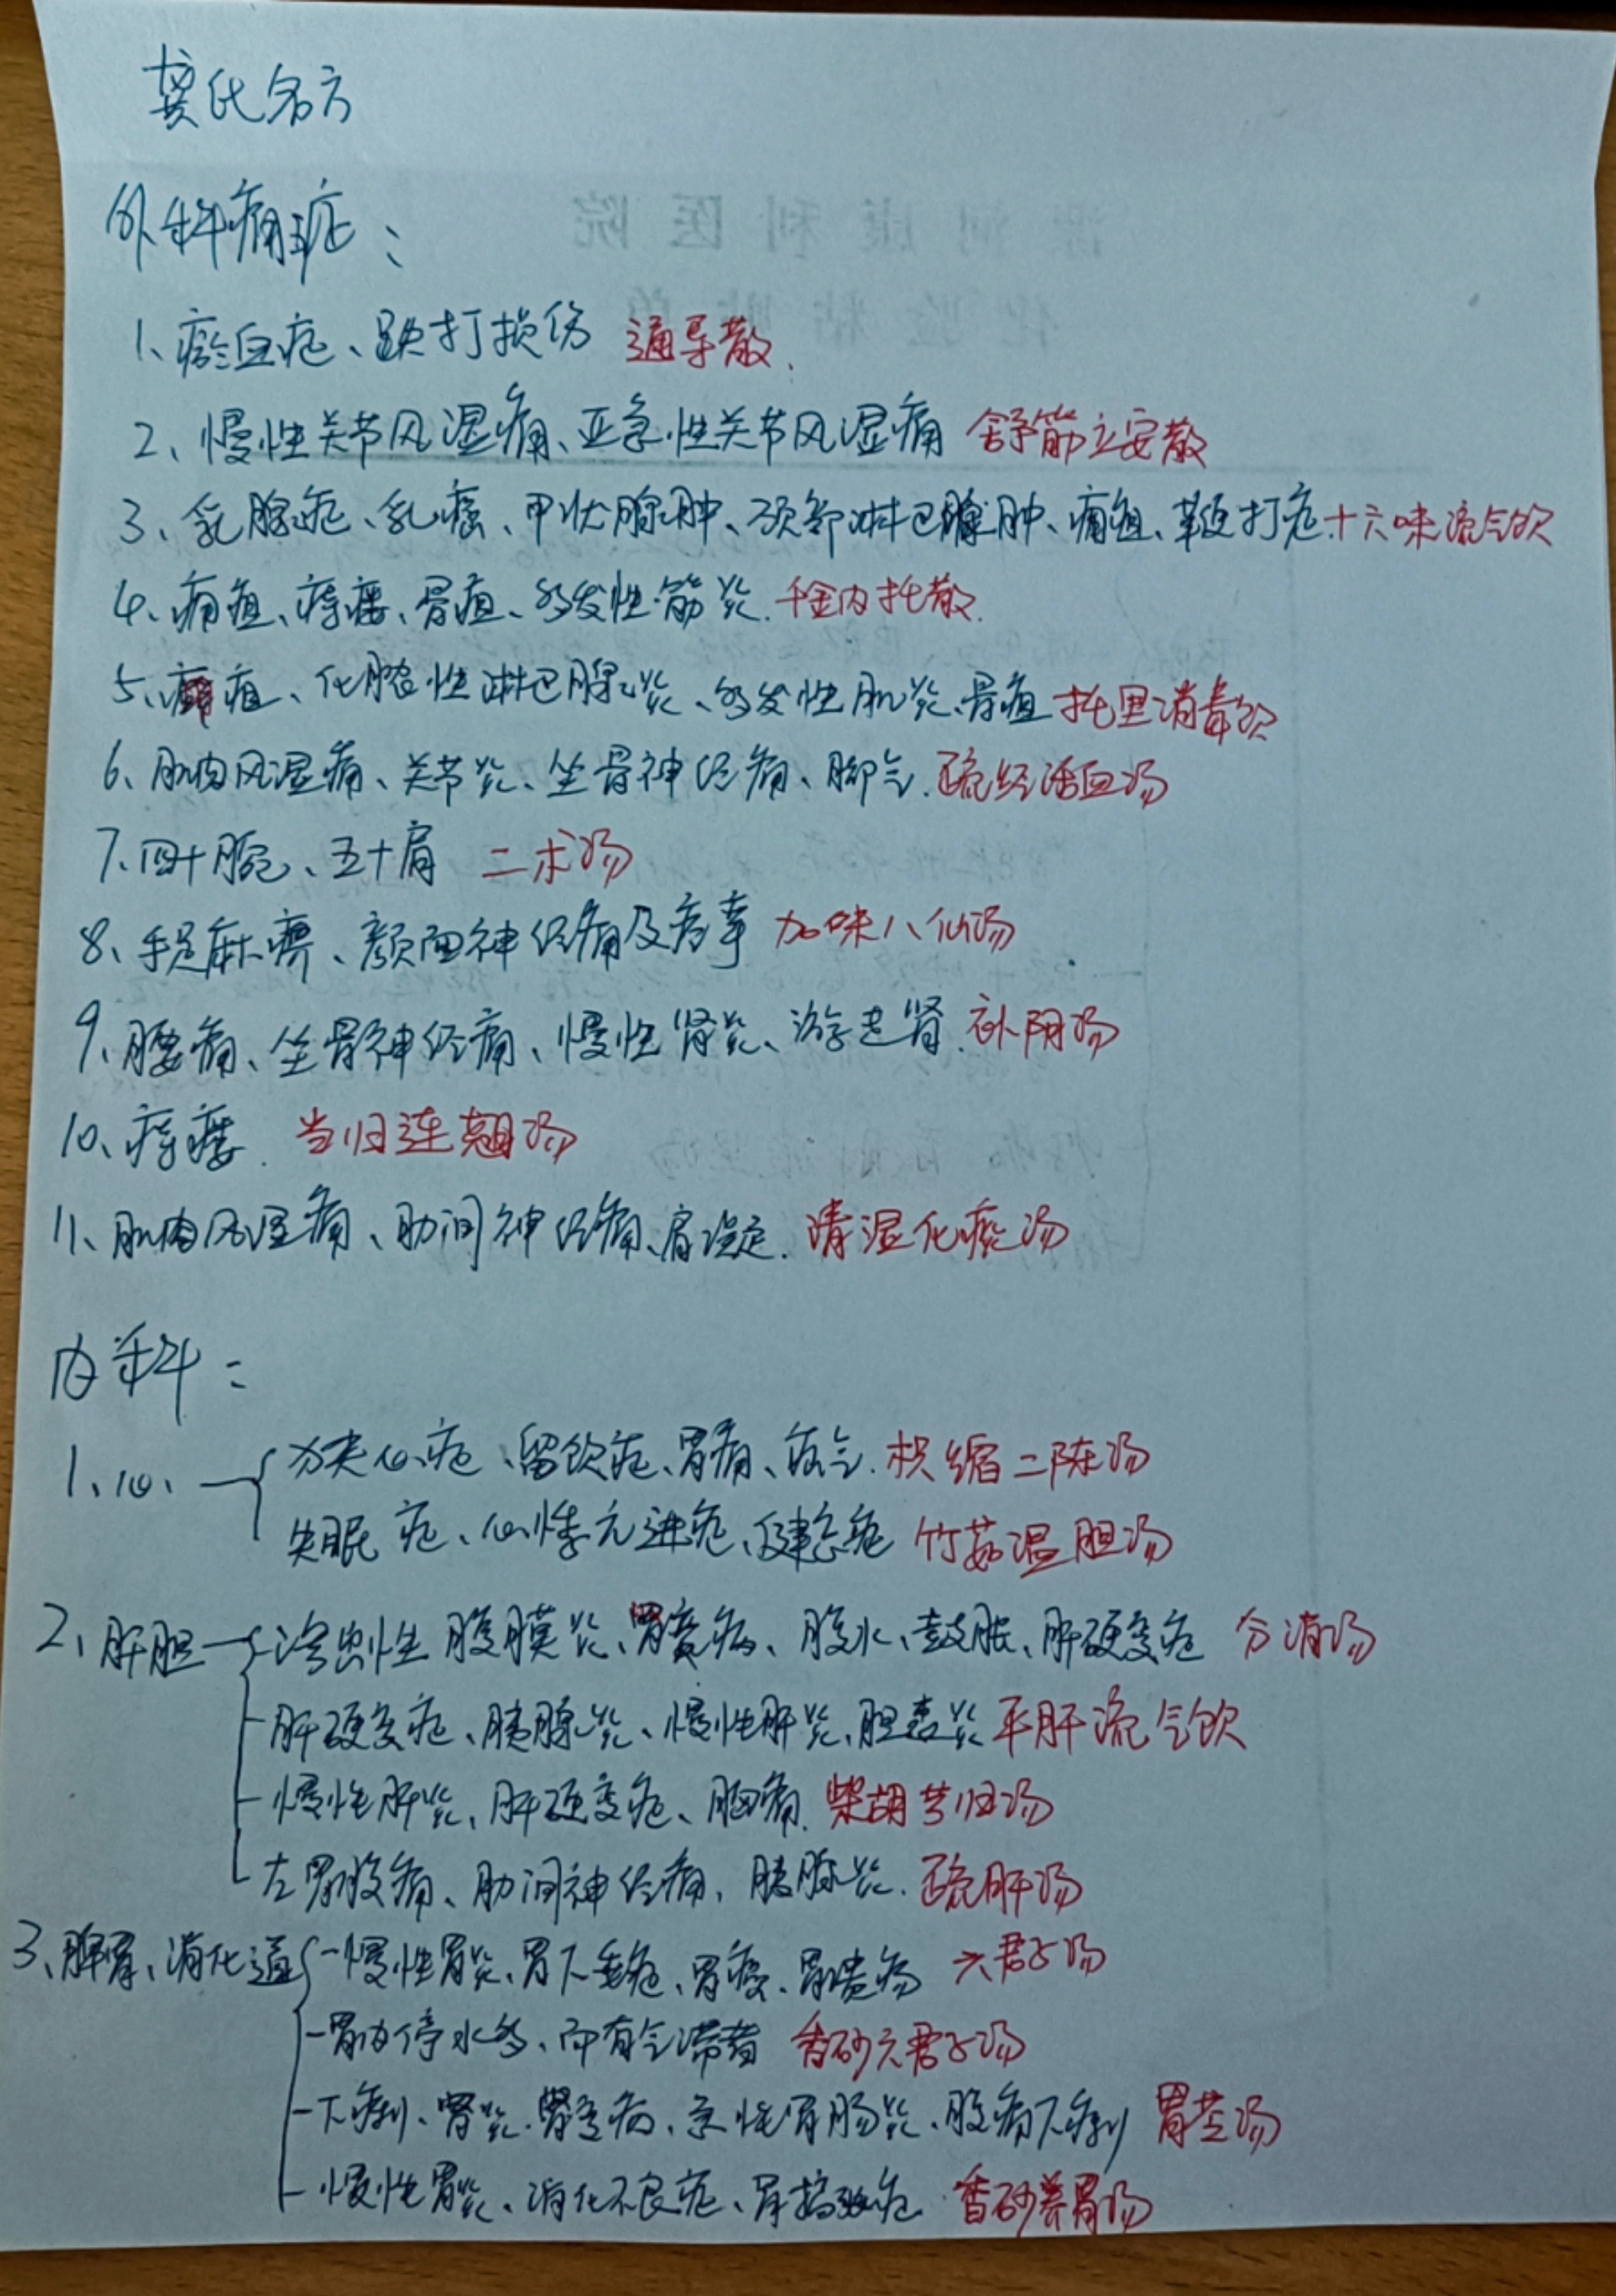 龚氏名方
外科痛症：
1、瘀血症、跌打损伤 通导散.
2、慢性关节风湿痛、亚急性关节风湿痛 舒筋立安散
3、乳腺症、乳癌、甲状腺肿、颈部淋巴腺肿、痈疽、鞭打症.十六味流气饮
4、痈疽、痔瘘、骨疽、多发性筋炎.千金内托散.
5、痈疽、化脓性淋巴腺炎、多发性肌炎、骨疽 托里消毒饮
6、肌肉风湿痛、关节炎、坐骨神经痛、脚气.疏经活血汤
7、四十腕、五十肩 二术汤
8、手足麻痹、颜面神经痛及痉挛 加味八仙汤
9、腰痛、坐骨神经痛、慢性肾炎、游走肾.补阴汤
10、痔瘘. 当归连翘汤
11、肌肉风湿痛、肋间神经痛、肩凝症.清湿化痰汤
内科：
1、心、 狭心症、留饮症、胃痛、疝气.枳缩二陈汤
失眠症、心悸亢进症、健忘症 竹茹温胆汤
2、肝胆 渗出性腹膜炎、胃变病、腹水、鼓胀、肝硬变症 分消汤
肝硬变症、胰腺炎、慢性肝炎、胆囊炎 平肝流气饮
慢性肝炎、肝硬变症、胸痛.柴胡芎归汤
左胸腹痛、肋间神经痛、胰腺炎.疏肝汤
3、脾胃、消化道 慢性胃炎、胃下垂症、胃癌、胃溃疡 六君子汤
胃内停水多、而有气滞者 香砂六君子汤
下痢、胃炎、肾变病、急性胃肠炎、腹痛下痢 胃苓汤
慢性胃炎、消化不良症、胃扩张症 香砂养胃汤